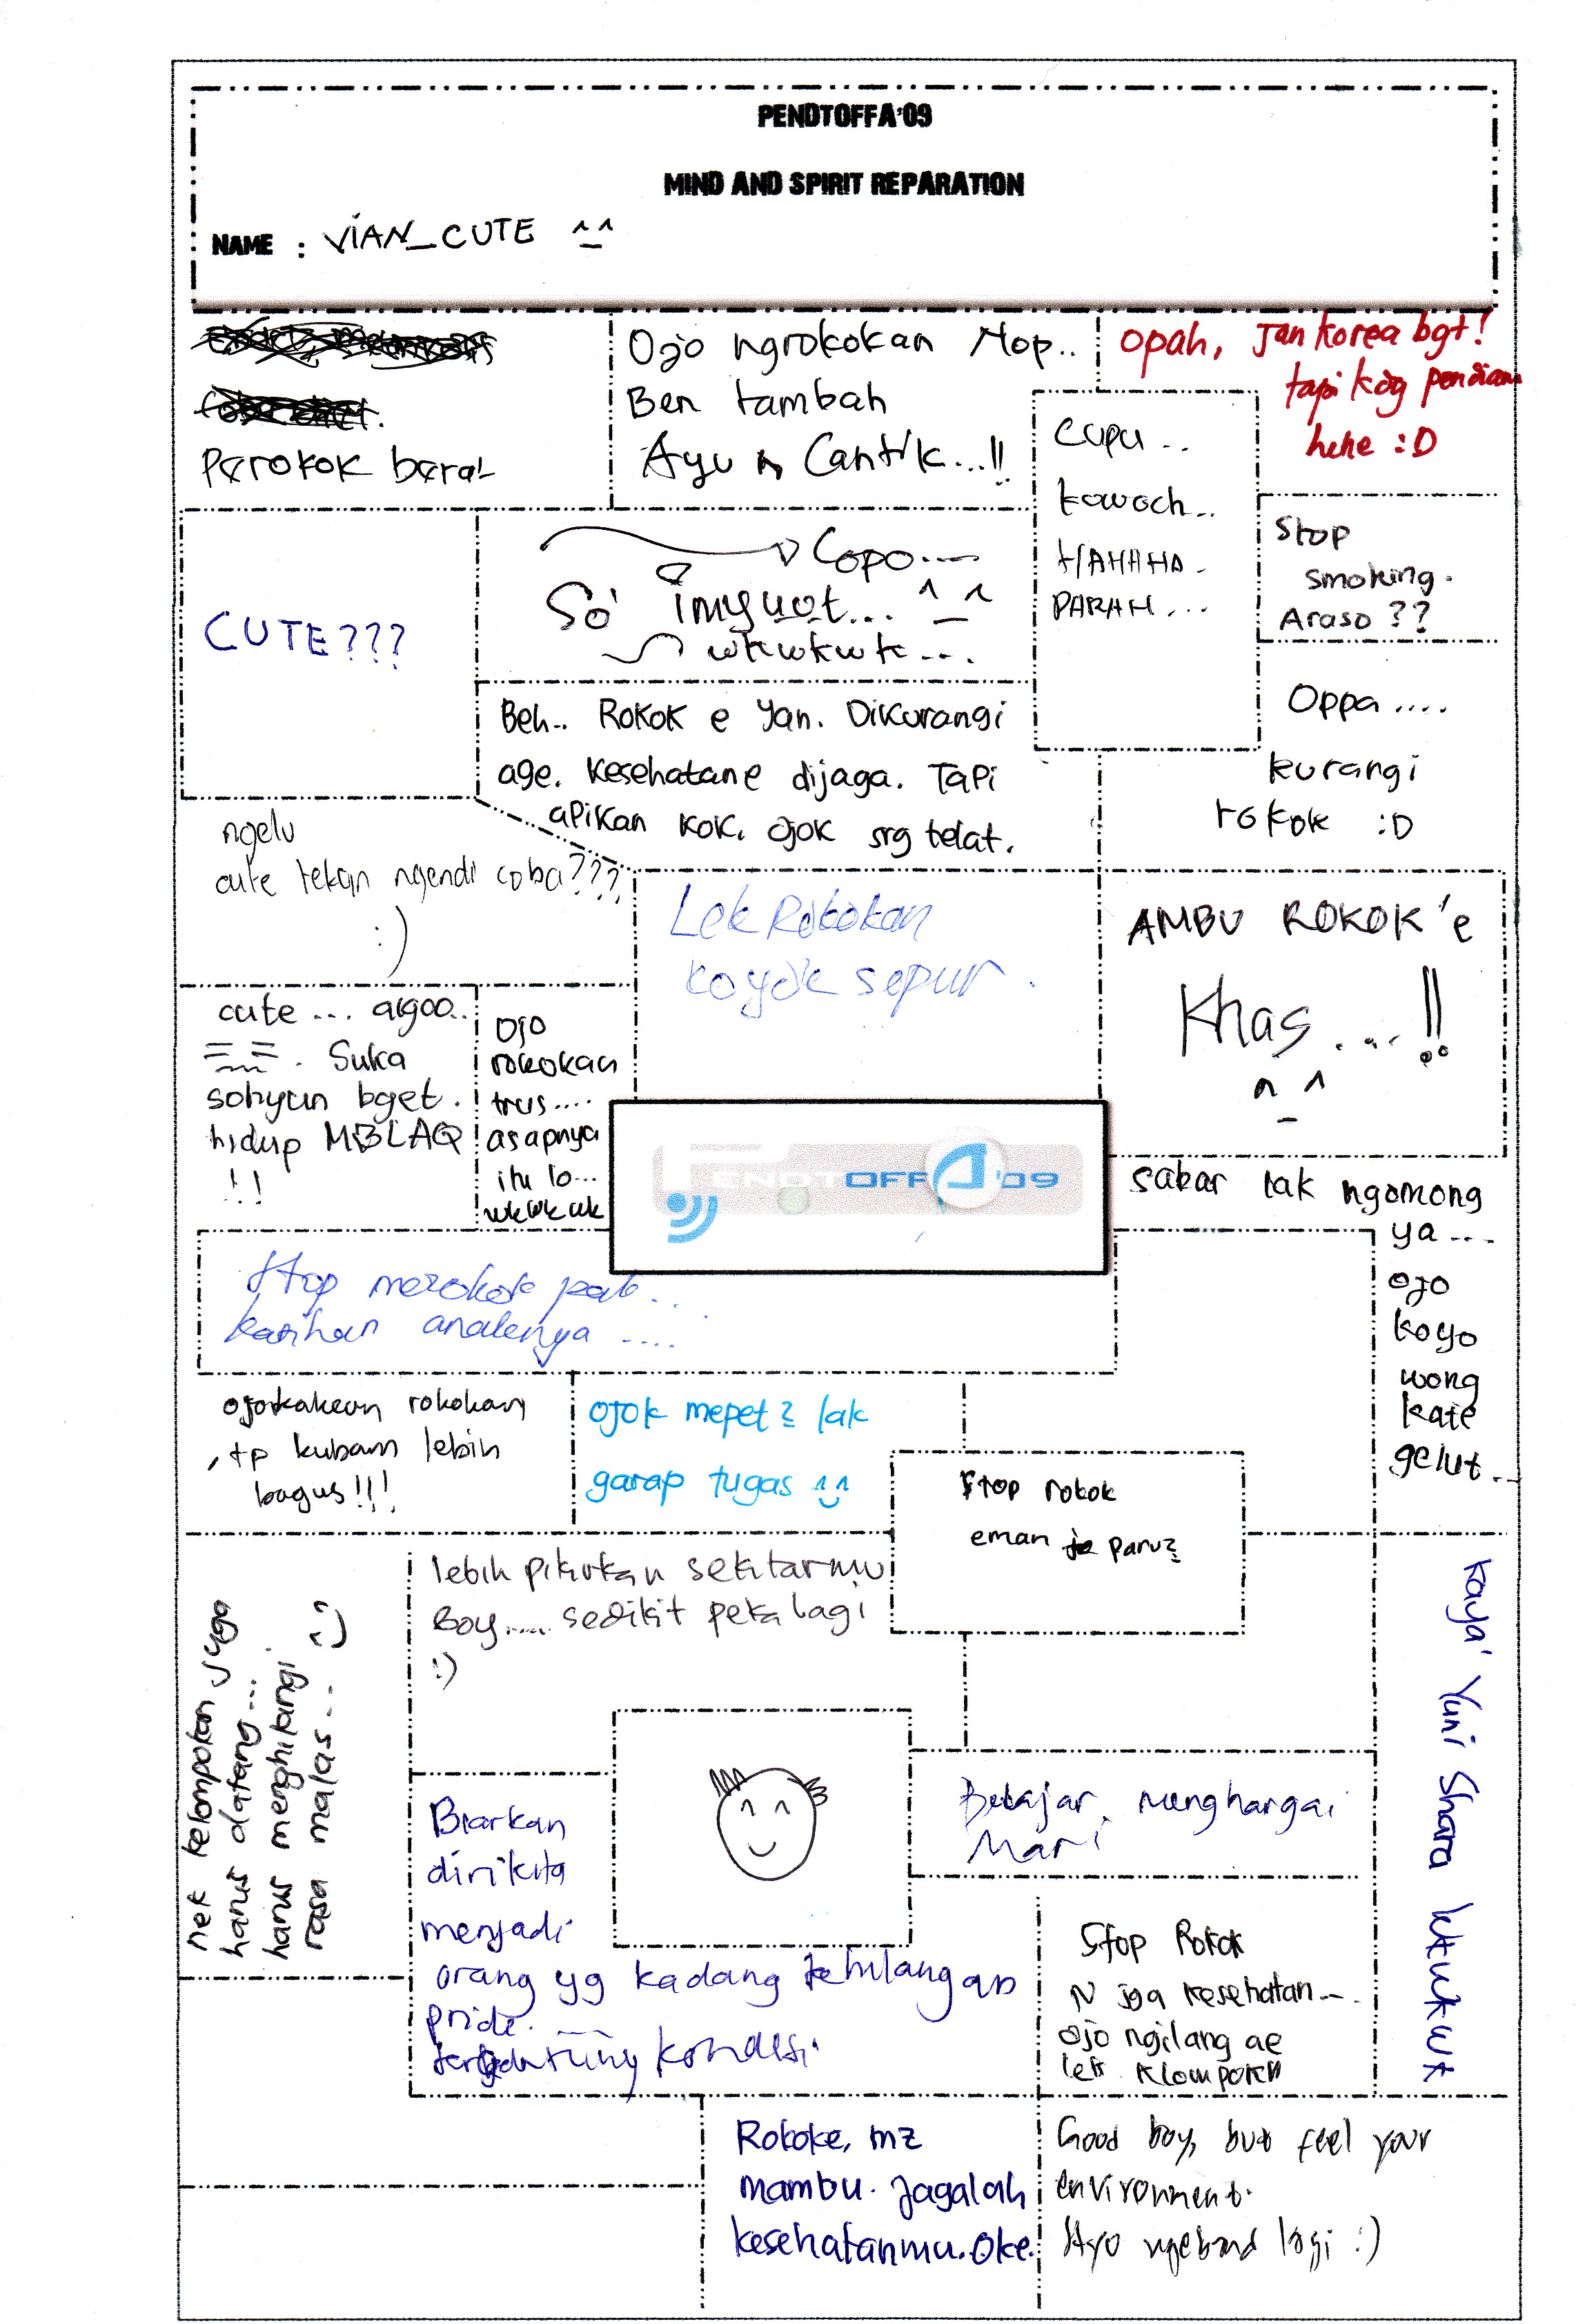 PENDTOFFA'09
MIND AND SPIRIT REPARATION
NAME : VIAN_CUTE ^_^
Perokok berat
Ojo ngrokokan Nop..
Ben tambah
Ayu n Cantik...!!
Opah, Jan korea bgt!
tapi kog pendiam
hehe :D
Cupu ..
kowoch..
HAHAHA.
PARAH...
Stop
smoking.
Araso ??
CUTE???
Copo....
So imyuot... ^_^
wkwkwk....
Oppa ....
kurangi
rokok :D
Beh.. Rokok e Yan. Dikurangi
age. Kesehatane dijaga. Tapi
apikan kok. ojok srg telat.
ngelu
cute tekan ngendi coba???
:)
Lek Rokokan
koyok sepur.
AMBU ROKOK'e
Khas ....!!
^_^
cute ... aigoo..
=_=. Suka
sohyun bget.
hidup MBLAQ
!!
Ojo
rokokan
trus....
asapnya
itu lo...
wkwkwk
PENDTOFFA'09
sabar tak ngomong
ya ...
ojo
koyo
wong
kate
gelut..
Stop merokok pak...
kasihan anaknya ....
ojo kakean rokokan
, tp kubam lebih
bagus!!!
ojok mepet2 lak
garap tugas ^_^
Stop rokok
eman paru2
lebih pikirkan sekitarmu
Boy..... sedikit peka lagi
:)
nek kelompokan juga
harus datang...
harus menghilangi
rasa malas... :)
kaya' Yuni Shara wkwkwk
Belajar. menghargai
Mari
Biarkan
diri kita
menjadi
orang yg kadang kehilangan
pride. ....
tergantung kondisi.
Stop Rokok
N jga kesehatan...
ojo ngilang ae
lek klompokn
Rokoke, mz
mambu. Jagalah
kesehatanmu. Oke.
Good boy, but feel your
environment.
Ayo ngeband lagi :)